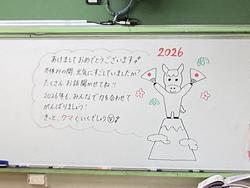 2026
あけましておめでとうございます
冬休みの間、元気にすごしていましたか?
たくさんお話聞かせてね!!
2026年も、みんなで力を合わせて
がんばりましょう!
きっと、ウマくいくでしょう